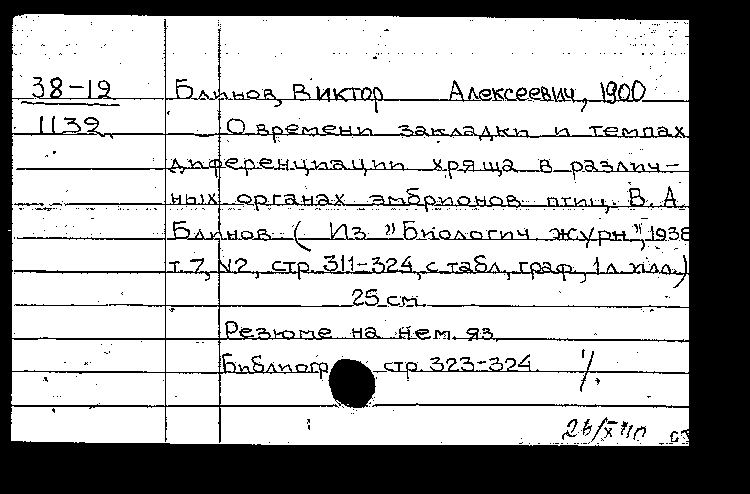 38-19 Блинов, Виктор Алексеевич, 1900
1139 О времени закладки и темпах
диференциации хряща в различ-
ных органах эмбрионов птиц. В. А.
Блинов (Из "Биологич. журн.", 1938
т. 7, N2, стр. 311-324, с табл., граф., 1 л. илл.)
25 см.
Резюме на нем. яз.
Библиогр стр. 323-324.